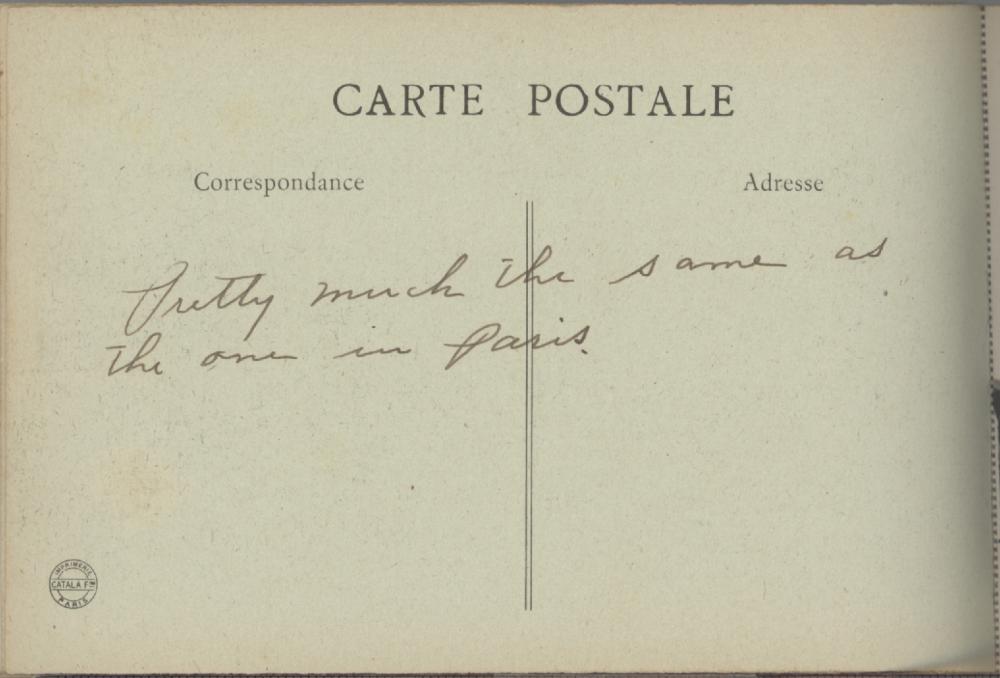 CARTE POSTALE
Correspondance
Adresse
Pretty much the same as
the one in Paris.
IMPRIMERIE
CATALA FRES
PARIS